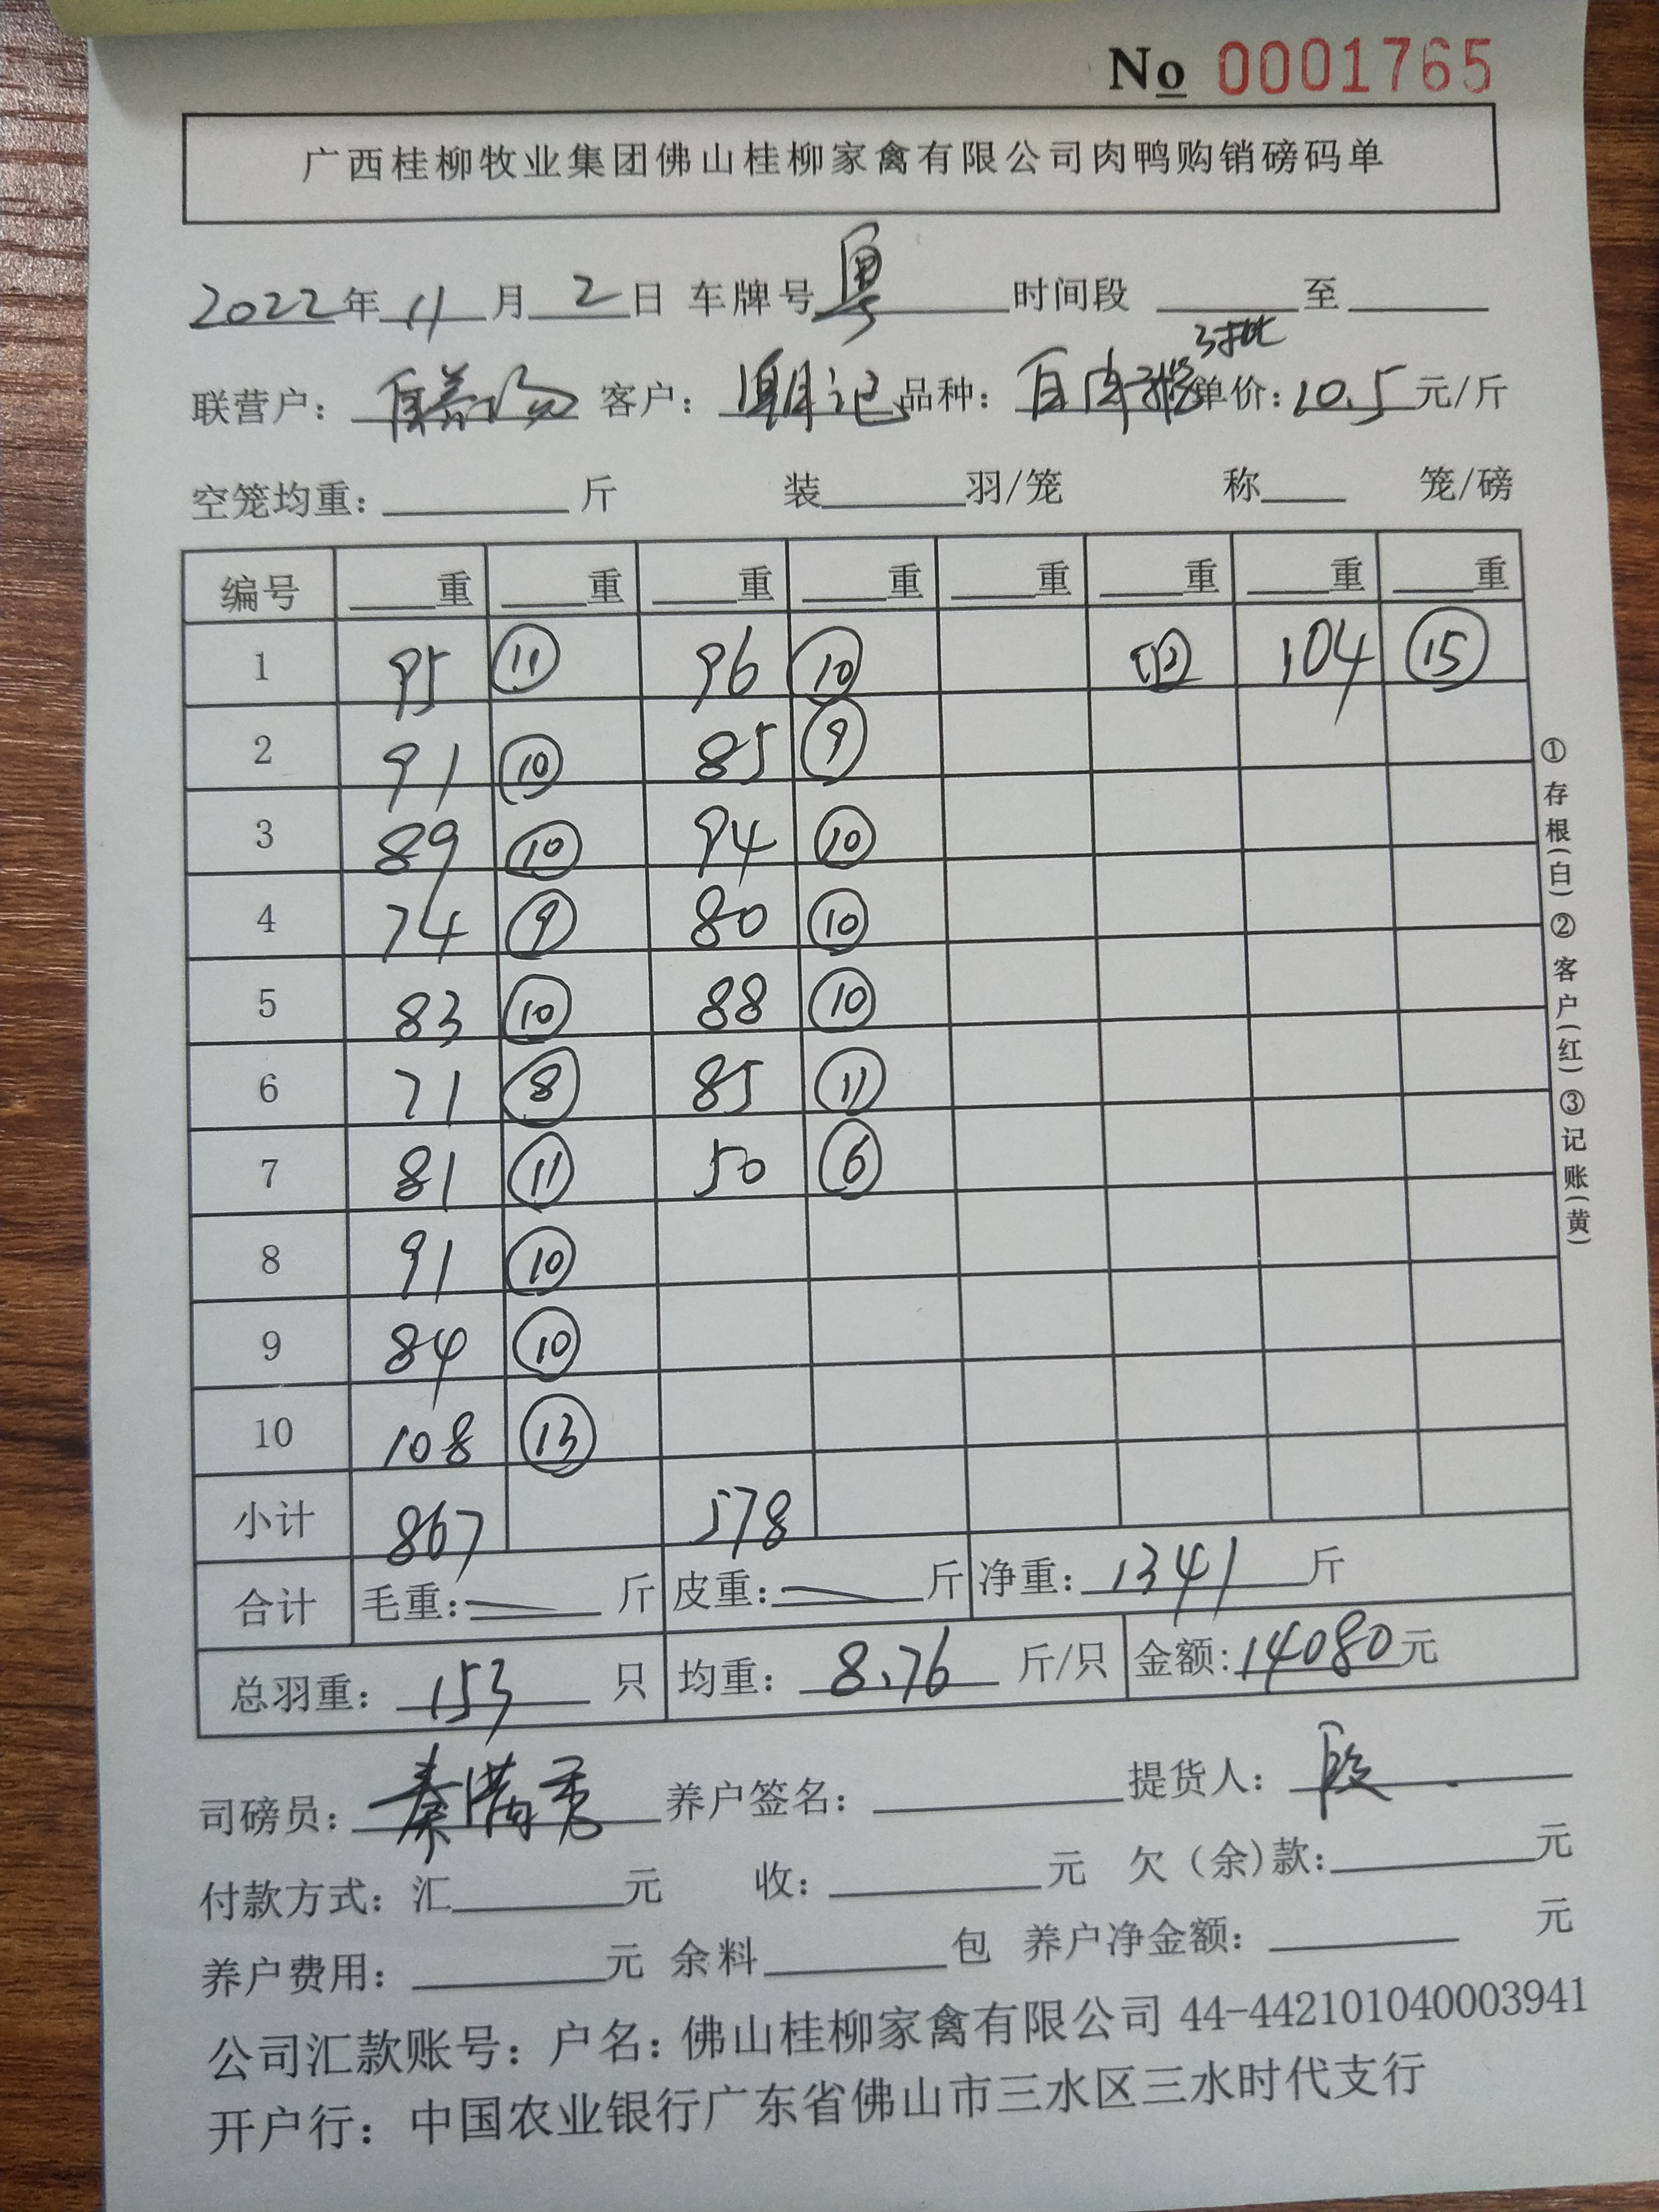 No 0001765
广西桂柳牧业集团佛山桂柳家禽有限公司肉鸭购销磅码单
2022年 11 月 2 日 车牌号 粤 时间段 至
3批
联营户： 自养场 客户： 潮记 品种： 白肉 单价：10.5元/斤
空笼均重： 斤 装 羽/笼 称 笼/磅
编号 重 重 重 重 重 重 重 重
1 95 ⑪ 96 ⑩ 104 ⑮
2 91 ⑩ 85 ⑨
3 89 ⑩ 94 ⑩
4 74 ⑨ 80 ⑩
5 83 ⑩ 88 ⑩
6 71 ⑧ 85 ⑪
7 81 ⑪ 50 ⑥
8 91 ⑩
9 84 ⑩
10 108 ⑬
小计 867 578
合计 毛重： 斤 皮重： 斤 净重：1341斤
总羽重： 153 只 均重： 8.76 斤/只 金额：14080元
司磅员：秦满秀 养户签名： 提货人：段
付款方式：汇 元 收： 元 欠（余）款： 元
养户费用： 元 余料 包 养户净金额： 元
公司汇款账号：户名：佛山桂柳家禽有限公司 44-442101040003941
开户行：中国农业银行广东省佛山市三水区三水时代支行
①存根(白)②客户(红)③记账(黄)